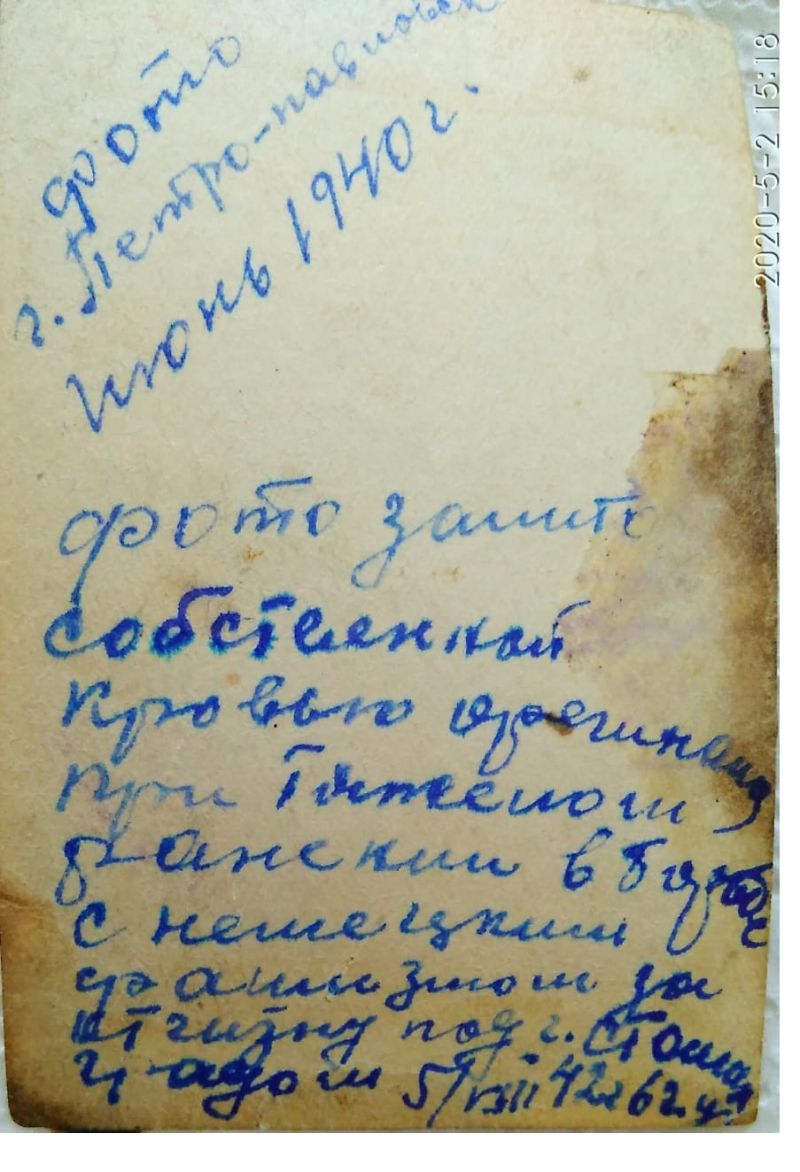 фото
г. Петро-павловск
июнь 1940 г.
фото залито
собственной
кровью
при тяжелом
ранении в борьбе
с немецким
фашизмом за
отчизну под г. Сталин
градом 5/VIII 42г 62г.
2020-5-2 15:18